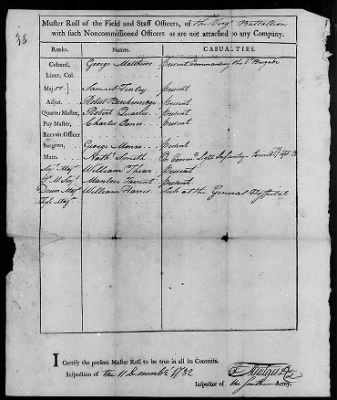 Muster Roll of the Field and Staff Officers, of the Virg.a Battallion
with such Noncommissioned Officers as are not attached to any Company.
36
Ranks. Names. CASUALTIES.
Colonel, George Matthews Present Commanding the 1st Brigade
Lieut. Col.
Major Samuel Finley Present
Adjut. Robt Breckenridge Present
Quarter Master, Robert Quarles Present
Pay Master, Charles Jones Present
Recruit. Officer
Surgeon, George Monro Present
Mate. Nath. Smith Light Infantry
Serj. Maj. William Present
Q M Serj. Present
Drum Maj. William Harris Sick at the General Hospital
Fife Maj.
I Certify the present Muster Roll to be true in all its Contents.
Inspection of the 11 December 1782
Inspector of the Southern Army.